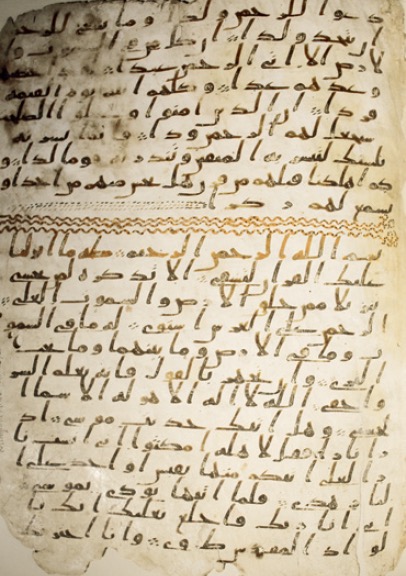 دعوا للرحمن ولدا وما ينبغي للرحمن
ان يتخذ ولدا ان كل من في السموت وا
لارض الا اتي الرحمن عبدا لقد احصهم
وعدهم عدا وكلهم اتيه يوم القيمه
فردا ان الذين امنوا وعملوا الصلحت
سيجعل لهم الرحمن ودا فانما يسرنه
بلسنك لتبشر به المتقين وتنذر به قوما لدا و
كم اهلكنا قبلهم من قرن هل تحس منهم من احد او
تسمع لهم ركزا
بسم الله الرحمن الرحيم طه ما انزلنا
عليك القران لتشقى الا تذكره لمن يخشى
تنزيلا ممن خلق الارض والسموت العلى
الرحمن على العرش استوى له ما في السمو
ت وما في الارض وما بينهما وما تحت
الثرى وان تجهر بالقول فانه يعلم السر
واخفى الله لا اله الا هو له الاسما ا
لحسنى وهل اتيك حديث موسى اذ
را نارا فقال لاهله امكثوا اني انست نا
را لعلي اتيكم منها بقبس او اجد على ا
لنار هدى فلما اتيها نودي يموسى
اني انا ربك فاخلع نعليك انك با
لواد المقدس طوى وانا اخترتك